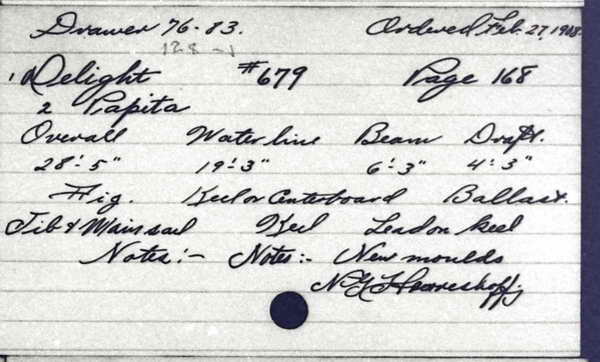 Drawer 76-83. Ordered Feb. 27, 1908.
128-1
1 Delight #679 Page 168
2 Papita
Overall Waterline Beam Draft.
28'-5" 19'-3" 6'-3" 4'-3"
Rig. Keel or Centerboard Ballast.
Jib & Mainsail Keel Lead on keel
Notes:- Notes:- New moulds
N. G. Herreshoff